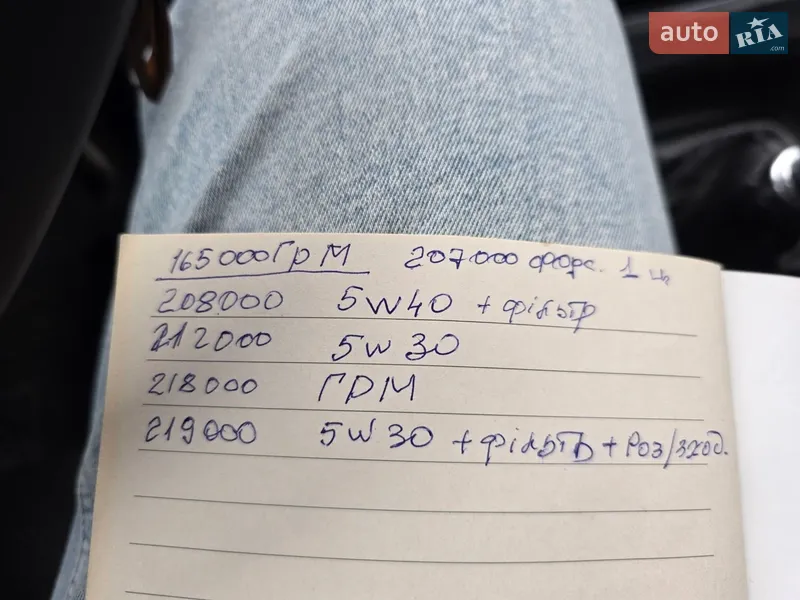 auto RIA .com
165000 ГРМ 207000 форс. 1 ц.
208000 5W40 + фільтр
212000 5W30
218000 ГРМ
219000 5W30 + фільтр + Роз/зход.